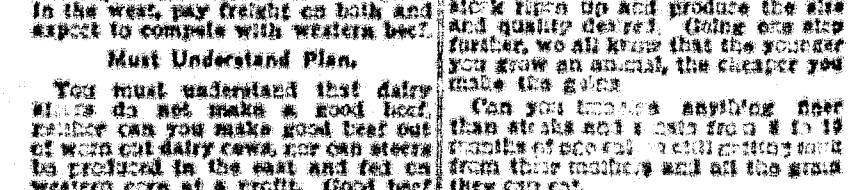 in the west, pay freight on both and
expect to compete with western beef.
Must Understand Plan.
You must understand that dairy
steers do not make a good beef,
neither can you make good beef out
of worn out dairy cows, nor can steers
be produced in the east and fed on
western corn at a profit. Good beef
stock ripen up and produce the size
and quality desired. Going one step
further, we all know that the younger
you grow an animal, the cheaper you
make the gains
Can you anything finer
than steaks and roasts from 8 to 
months of age still getting milk
from their mothers and all the grain
they can eat.